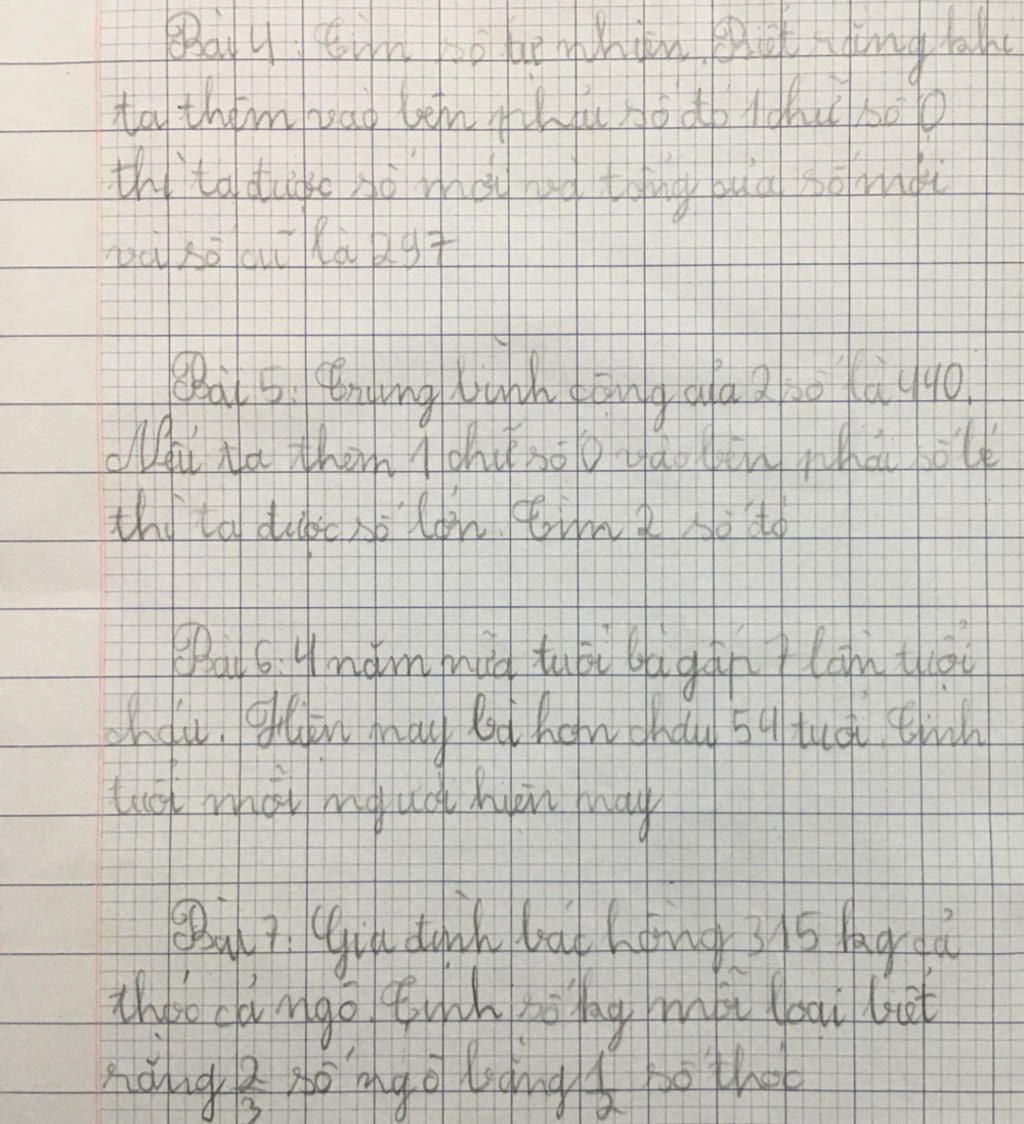 Bài 4: Tìm số tự nhiên. Biết rằng khi
ta thêm vào bên phải số đó 1 chữ số 0
thì ta được số mới và tổng của số mới
và số cũ là 297
Bài 5: Trung bình cộng của 2 số là 440.
Nếu ta thêm 1 chữ số 0 vào bên phải số bé
thì ta được số lớn. Tìm 2 số đó
Bài 6: 4 năm nữa tuổi bà gấp 7 lần tuổi
cháu. Hiện nay bà hơn cháu 54 tuổi. Tính
tuổi mỗi người hiện nay
Bài 7: Gia đình bác hồng 315 kg cả
thóc cả ngô. Tính số kg mỗi loại biết
rằng 2/3 số ngô bằng 1/2 số thóc